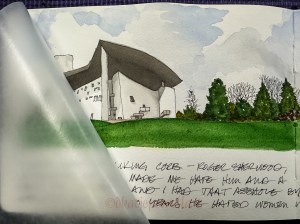 LIKING CORB - ROGER SHERWOOD,
MADE ME HATE HIM AND A
AND I HAD THAT ASSHOLE
YEARS. HE HATED WOMEN